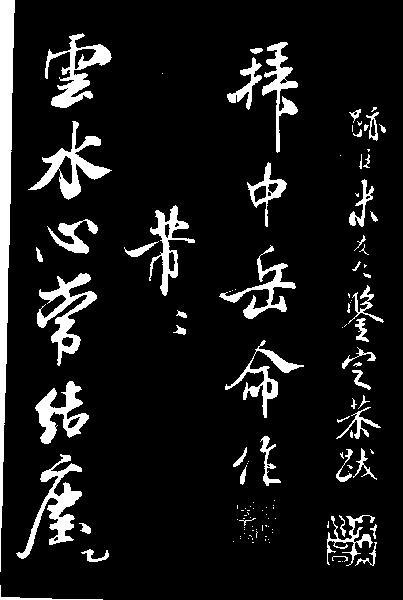 跡臣米友仁鑒定恭跋
拜中岳命作
芾〻
雲水心常結塵